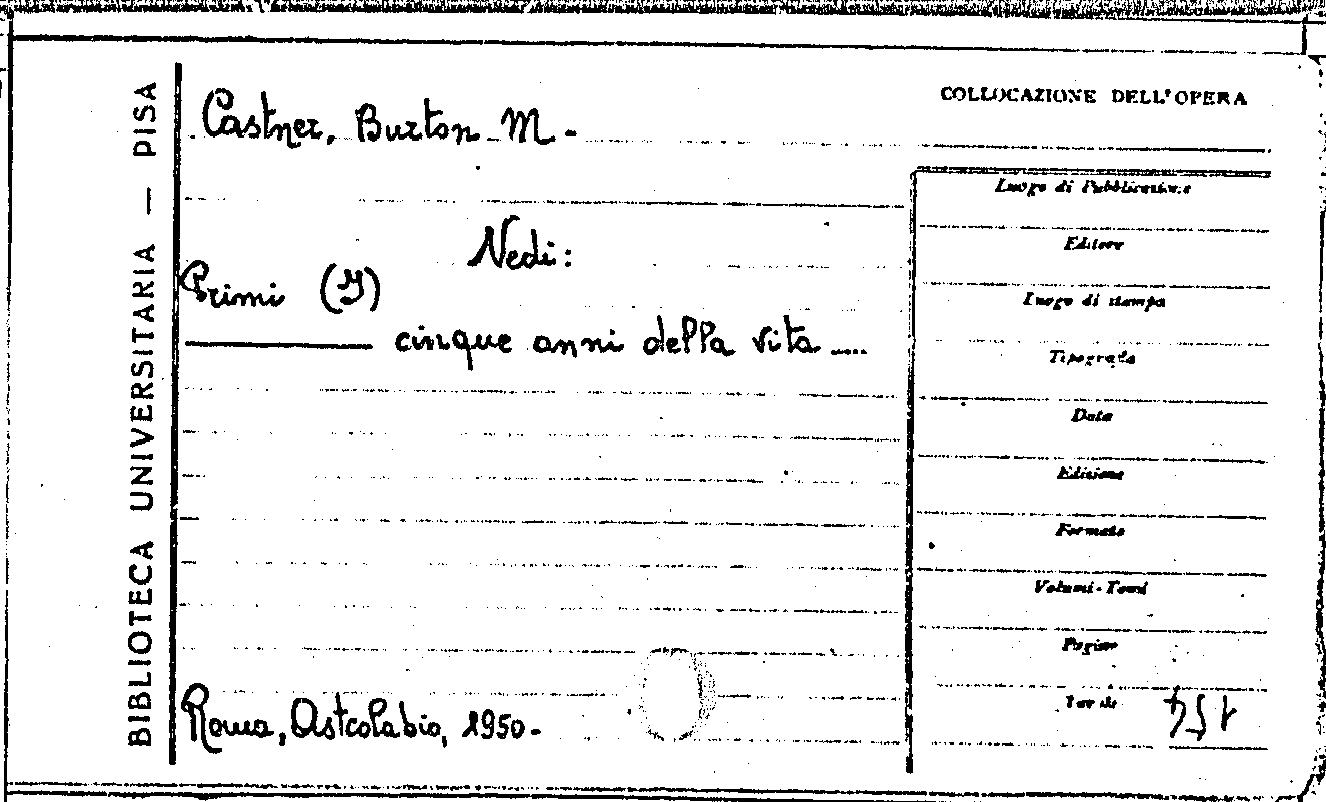 BIBLIOTECA UNIVERSITARIA — PISA
Castner, Burton M -
COLLOCAZIONE DELL'OPERA
Vedi:
Primi (I)
——— cinque anni della vita ....
Roma, Astrolabio, 1950.-
Luogo di Pubblicazione
Editore
Luogo di stampa
Tipografia
Data
Edizione
Formato
Volumi-Tomi
Pagine
Tavole